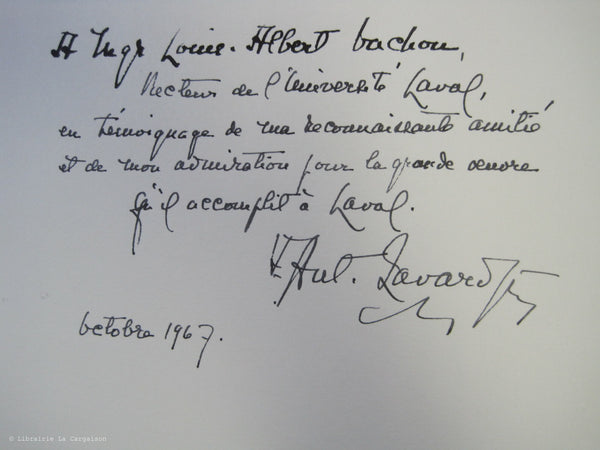 A Mgr Louis-Albert Vachon,
Recteur de l'Université Laval,
en témoignage de ma reconnaissante amitié
et de mon admiration pour la grande oeuvre
qu'il accomplit à Laval.
Ant. Lavard
octobre 1967.
© Librairie La Cargaison